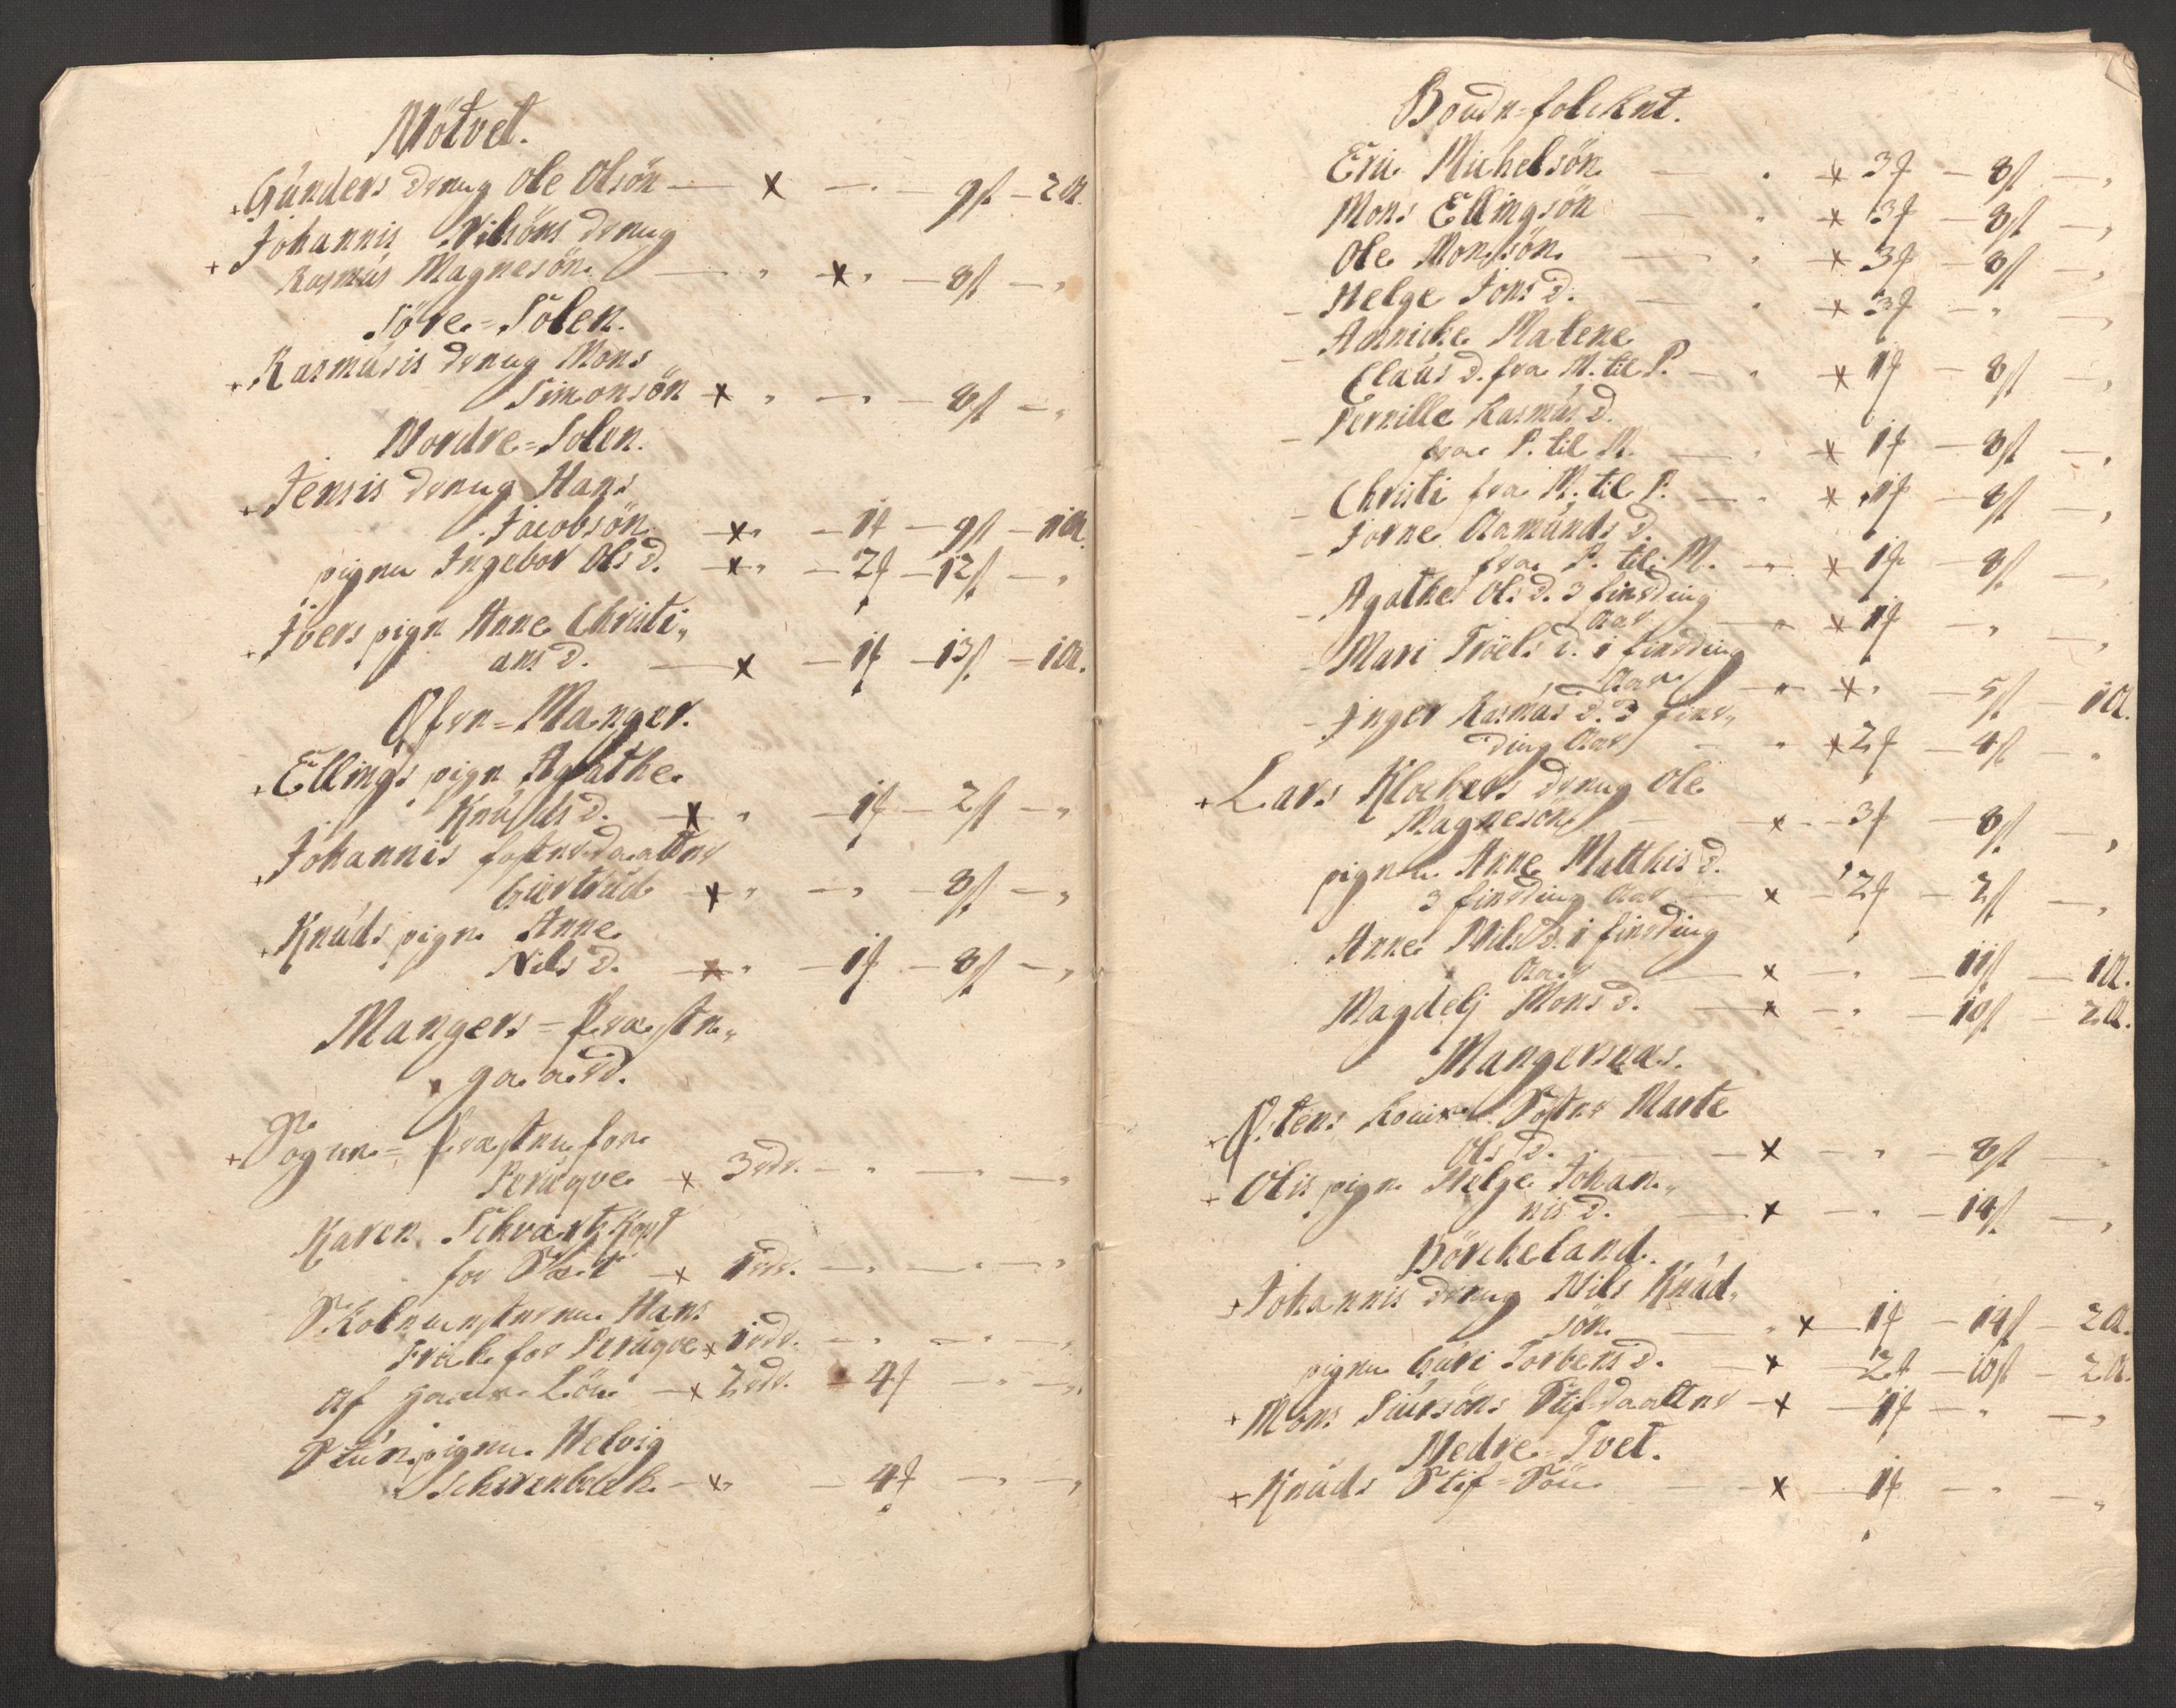 Mötvet.
+ Gunders dreng Ole Olsön — x — . — 9ß — 2a.
Johannis Nilsöns dreng
+ Rasmus Magnesön — " x " — 8ß — "
Söre=Solen.
+ Rasmusis dreng Mons
Simonsön x " — " — 8ß — "
Nordre=Solen.
+ Jensis dreng Hans
Jacobsön — x " — 1f — 9ß — 1a.
pigen Ingebor Ols d. — x " — 2f — 12ß — "
+ Ivers pign Anne Christi„
ans d. — x — 1f — 13ß — 1a.
Öfre=Manger.
+ Ellings pign Agathe
Knuds d. — x " — 1f — 2ß — "
+ Johannis fosterdaatter
Giertrud x " — " — 8ß — "
+ Knuds pign Anne
Nils d. — x " — 1f — 8ß — "
Mangers=Præste„
gaard.
+ Sogne=Præsten for
Peruqve x 3rdr. — " — " — "
Karen Schvartzkopf
for Sæt — x 1rdr. — " — " — "
Skolemesteren Hans
Frich for Peruqve x 1rdr. — " — " — "
af hans Lön — x 2rdr. — 4f — " — "
Stuepigen Helvig
— x " — 4f — " — "
Bonde=folcket.
Eric Michelsön — " x 3f — 8ß — "
Mons Ellingsön — " x 3f — 8ß — "
Ole Monssön — " x 3f — 8ß — "
– Helge Jons d. — " x 3f — " — "
– Annicke Malene
Claus d. fra M. til P. — " x 1f — 8ß — "
– Pernille Rasmus d.
fra P. til M. — " x 1f — 8ß — "
– Christi fra M. til P. — " x 1f — 8ß — "
– Jorne Aamunds d.
fra P. til M. — " x 1f — 8ß — "
– Agathe Ols d. 3 fierding
Aar — " x 1f — " — "
– Mari Tröels d. 1 fierding
Aar — " x " — 5ß — 1a.
– Inger Rasmus d. 3 fier„
ding Aar — " x 2f — 4ß — "
+ Lars Klockers dreng Ole
Magnesön — x — 3f — 8ß — "
pigen Anne Matthis d.
3 fierding Aar — x — 2f — 2ß — "
Anne Nils d. 1 fierding
Aar — x — " — 11ß — 1a.
Magdelj Mons d. — x — " — 10ß — 2a.
Mangersnæs.
+ Östens Foster Marte
Ols d. — x — " — 8ß — "
+ Olis pign Helge Johan„
nis d. — x — " — 14ß — "
Börckeland.
+ Johannis dreng Nils Knud„
sön — " x — 1f — 14ß — 2a.
pigen Guri Torbens d. — x — 2f — 10ß — 2a.
+ Mons Siursöns Stifdaatter — x — 1f — " — "
Nedre=Tvet.
+ Knuds Stif=Sön — x — 1f — " — "